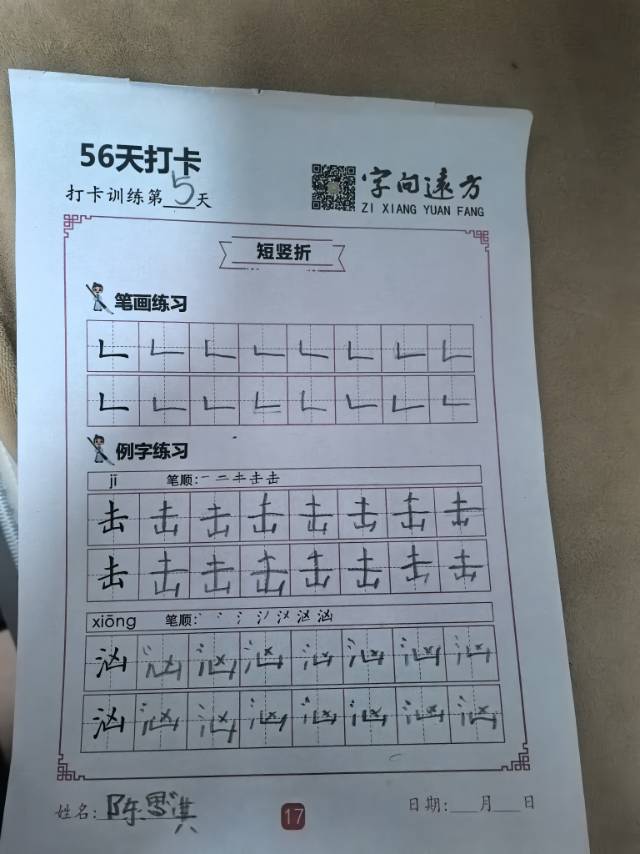 56天打卡
打卡训练第5天
字向远方
ZI XIANG YUAN FANG
短竖折
笔画练习
𠃊 𠃊 𠃊 𠃊 𠃊 𠃊 𠃊 𠃊
𠃊 𠃊 𠃊 𠃊 𠃊 𠃊 𠃊 𠃊
例字练习
jī 笔顺:一 二 キ 击 击
击 击 击 击 击 击 击 击
击 击 击 击 击 击 击 击
xiōng 笔顺:
汹 汹 汹 汹 汹 汹 汹 汹
汹 汹 汹 汹 汹 汹 汹 汹
姓名:陈思淇
17
日期:___月___日